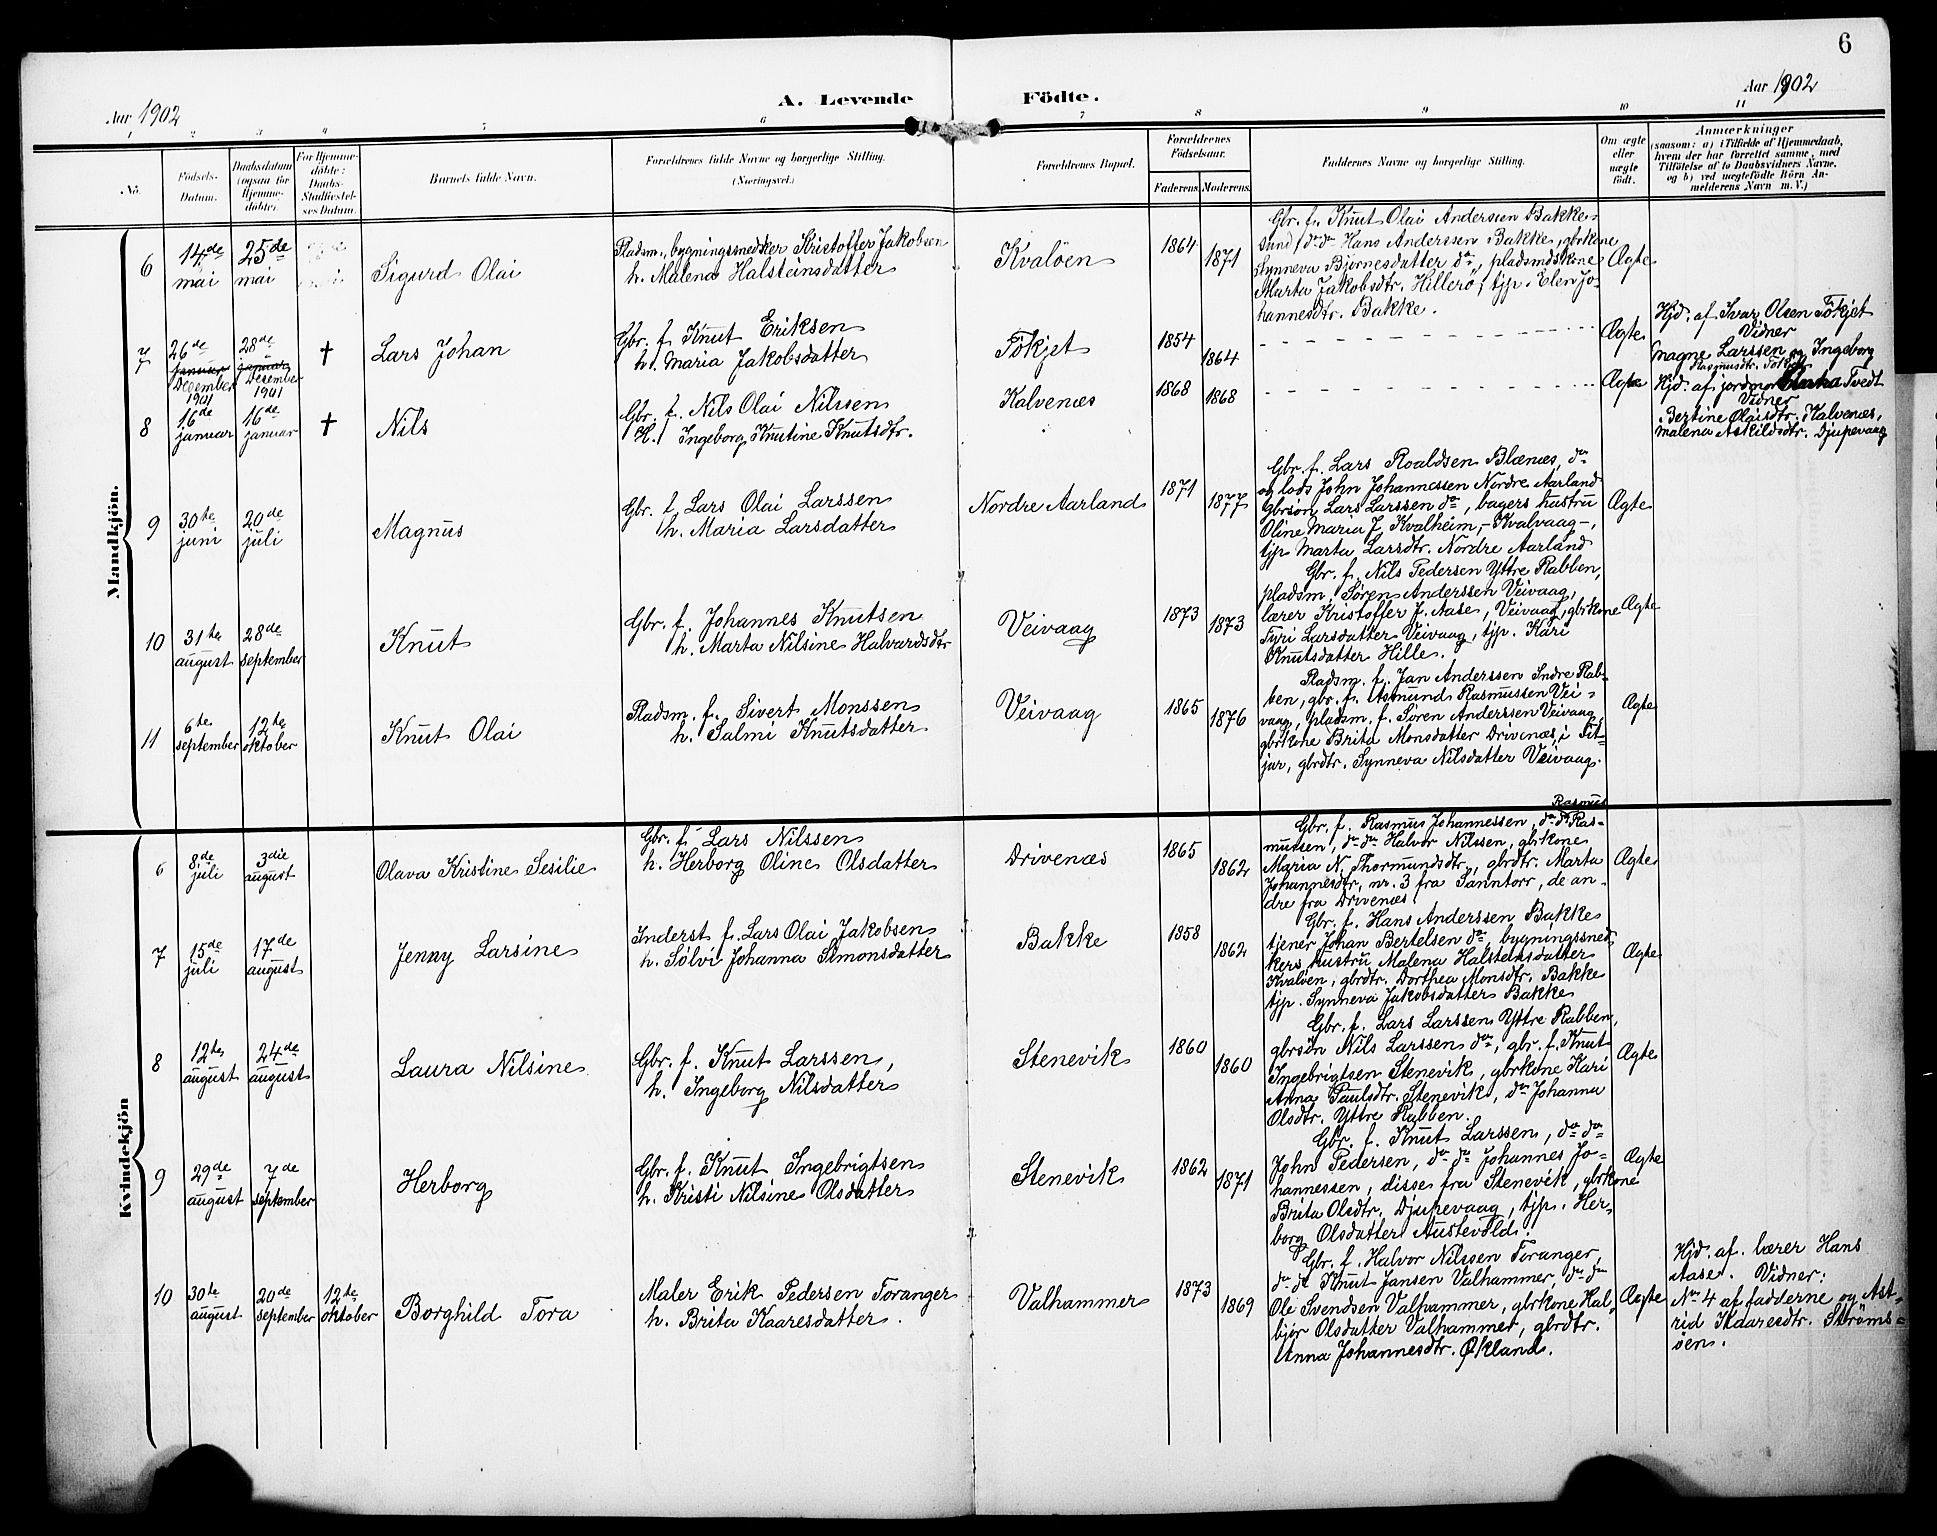 6
Aar 1902
A. Levende Födte.
Aar 1902
1 2 3 4 5 6 7 8 9 10 11
No.
Födsels-
Datum.
Daabsdatum
(ogsaa for
Hjemme-
döbte).
For Hjemme-
döbte:
Daabs-
Stadfæstel-
ses Datum.
Barnets fulde Navn.
Forældrenes fulde Navne og borgerlige Stilling.
(Næringsvei.)
Forældrenes Bopæl.
Forældrenes
Födselsaar.
Faderens. Moderens.
Faddernes Navne og borgerlige Stilling.
Om ægte
eller
uægte
født.
Anmærkninger
(saasom: a) i Tilfælde af Hjemmedaab,
hvem der har forrettet samme, med
Tilföielse af to Daabsvidners Navne.
og b) ved uægtefödte Börn An-
melderens Navn m. V.)
Mandkjön.
6
14de
mai
25de
mai
Sigurd Olai
Pladsm., bygningssnedker Kristoffer Jakobsen
h. Malena Halsteinsdatter
Kvaløen
1864
1871
Gbr. f. Knut Olai Andersen Bakke-
sund, do do Hans Anderssen Bakke, gbrkone
Synneva Bjørnesdatter do, pladsmdskone
Marta Jakobsdtr. Hillerø, tjp. Elen Jo-
hannesdtr. Bakke.
Ægte
7
26de
januar
December
1901
28de
januar
Desember
1901
†
Lars Johan
Gbr. f. Knut Eriksen
h. Maria Jakobsdatter
Tøkjet
1854
1864
Ægte
Hjd. af Ivar Olsen Tøkjet
Vidner
Magne Larssen og Ingeborg
Rasmusdtr. Tøkjet
8
16de
januar
16de
januar
†
Nils
Gbr. f. Nils Olai Nilssen
h. Ingeborg Knutine Knutsdtr.
Kalvenæs
1868
1868
Ægte
Hjd. af jordmor Marta Tvedt
Vidner
Bertine Olaisdtr. Kalvenæs,
Malena Askildsdtr. Djupevaag
9
30te
juni
20de
juli
Magnus
Gbr. f. Lars Olai Larssen
h. Maria Larsdatter
Nordre Aarland
1871
1877
Gbr. f. Lars Roaldsen Blænæs, do
og lods John Johannessen Nordre Aarland
Gbrsøn Lars Larssen do, bagers hustru
Oline Maria J. Kvalheim, - Kvalvaag -,
tjp Marta Larsdtr. Nordre Aarland
Ægte
10
31te
august
28de
september
Knut
Gbr. f. Johannes Knutsen
h. Marta Nilsine Halvardsdtr
Veivaag
1873
1873
Gbr. f. Nils Pedersen Yttre Rabben,
pladsm. Søren Anderssen Veivaag,
lærer Kristoffer J. Aase, Veivaag, gbrkone
Tyri Larsdatter Veivaag, tjp. Kari
Knutsdatter Hille.
Ægte
11
6te
september
12te
oktober
Knut Olai
Pladsm. f. Sivert Monssen
h. Salmi Knutsdatter
Veivaag
1865
1876
Pladsm. f. Jan Anderssen Indre Rab-
ben, gbr. f. Asmund Rasmussen Vei-
vaag, pladsm. f. Søren Anderssen Veivaag,
gbrkone Brita Monsdatter Drivenæs i Fit-
jar, gbrdtr. Synneva Nilsdatter Veivaag.
Ægte
Kvindekjön
6
8de
juli
3die
august
Olava Kristine Sesilie
Gbr. f. Lars Nilssen
h. Herborg Oline Olsdatter
Drivenæs
1865
1862
Rasmus
Gbr. f. Rasmus Johannessen, do do Ras-
mussen, do do Halvor Nilssen, gbrkone
Maria N. Thormundsdtr., gbrdtr. Marta
Johannesdtr, nr. 3 fra Sanntorv, de an-
dre fra Drivenæs
Ægte
7
15de
juli
17de
august
Jenny Larsine
Inderst f. Lars Olai Jakobsen
h. Sølvi Johanna Simonsdatter
Bakke
1858
1862
Gbr. f. Hans Anderssen Bakke
tjener Johan Bertelsen do, bygningssned
kers hustru Malena Halsteinsdatter
Kvaløen, gbrdtr. Dorthea Monsdtr. Bakke
tjp. Synneva Jakobsdatter Bakke
Ægte
8
12te
august
24de
august
Laura Nilsine
Gbr. f. Knut Larssen,
h. Ingeborg Nilsdatter
Stenevik
1860
1860
Gbr. f. Lars Larssen Yttre Rabben,
gbrsön Nils Larssen do, gbr. f. Knut
Ingebrigtsen Stenevik, gbrkone Kari
Anna Paulsdtr. Stenevik, do Johanna
Olsdtr. Yttre Rabben.
Ægte
9
29de
august
7de
september
Herborg
Gbr. f. Knut Ingebrigtsen
h. Kristi Nilsine Olsdatter
Stenevik
1862
1871
Gbr. f. Knut Larssen, do do
John Pedersen, do do Johannes Jo-
hannessen, disse fra Stenevik, gbrkone
Brita Olsdtr. Djupevaag, tjp. Her-
borg Olsdatter Austevold.
Ægte
10
30te
august
20de
september
12te
oktober
Borghild Tora
Maler Erik Pedersen Toranger
h. Brita Kaaresdatter.
Valhammer
1873
1869
Gbr. f. Halvor Nilssen Toranger,
do do Knut Jansen Valhammer, do do
Ole Svendsen Valhammer, gbrkone Kal-
bjør Olsdatter Valhammer, gbrdtr.
Anna Johannesdtr. Økland.
Ægte
Hjd. af. lærer Hans
Aase. Vidner:
No 4 af fadderne og Ast-
rid Kaaresdtr. Strøms-
øen.